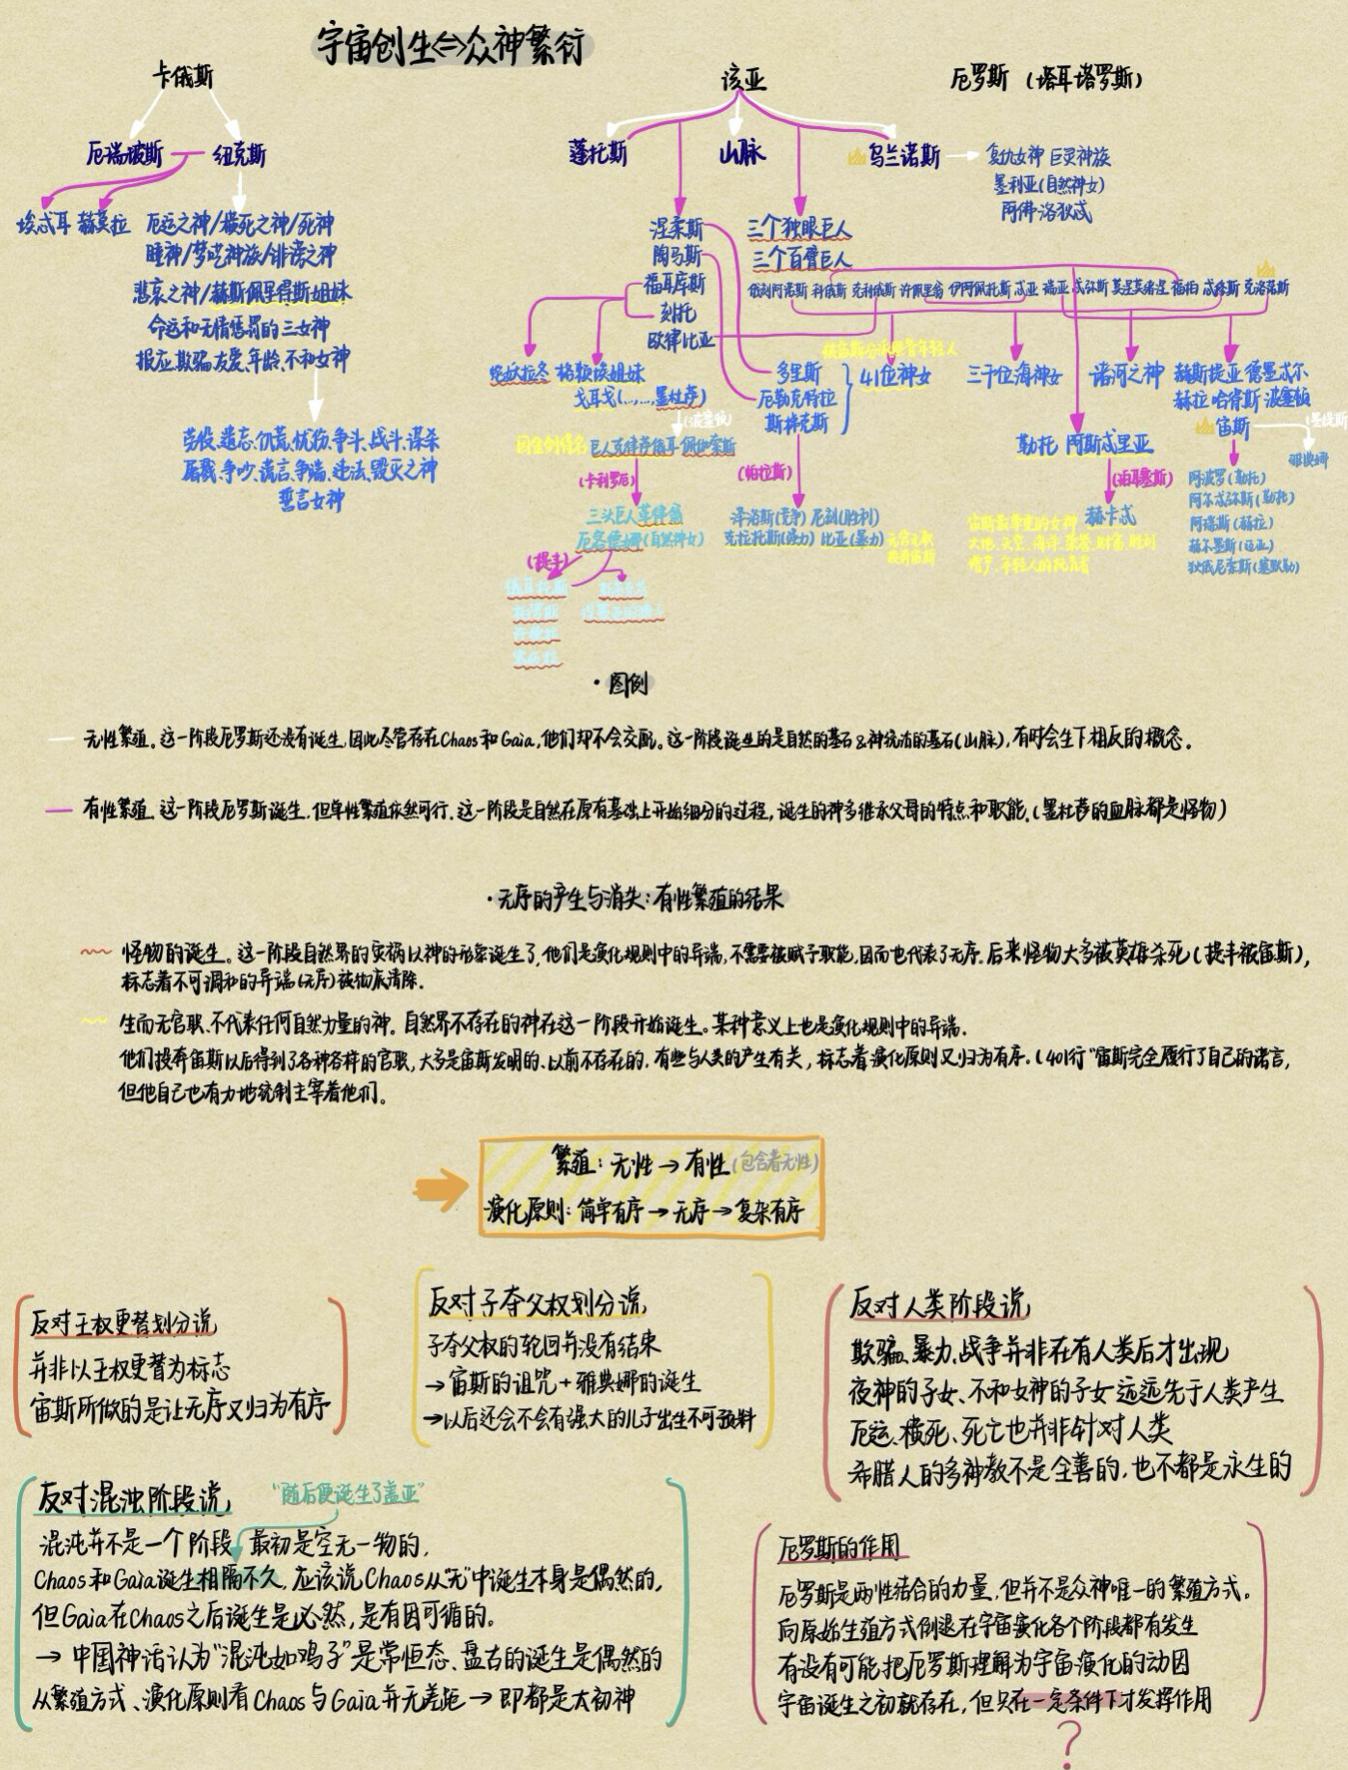 宇宙创生⇔众神繁衍
卡俄斯
该亚
厄罗斯（塔耳塔罗斯）
厄瑞玻斯
纽克斯
蓬托斯
山脉
乌兰诺斯
复仇女神 巨灵神族
墨利亚(自然神女)
阿佛洛狄忒
埃忒耳 赫莫拉
厄运之神/横死之神/死神
睡神/梦呓神族/诽谤之神
悲哀之神/赫斯佩里得斯姐妹
命运和无情惩罚的三女神
报应.欺骗.友爱.年龄.不和女神
劳役、遗忘、饥荒、忧伤、争斗、战斗、谋杀
屠戮、争吵、谎言、争端、违法、毁灭之神
誓言女神
涅柔斯
陶马斯
福耳库斯
刻托
欧律比亚
三个独眼巨人
三个百臂巨人
科俄斯 克利俄斯 许佩里翁 伊阿佩托斯 忒亚 瑞亚 忒弥斯
克洛诺斯
格赖埃姐妹
戈耳戈(...,...,墨杜萨)
多里斯
厄勒克特拉
斯梯克斯
41位神女
三千位海神女
诸河之神
赫斯提亚 德墨忒尔
赫拉 哈得斯 波塞顿
宙斯
(墨提斯)
雅典娜
(波塞顿)
(卡利罗厄)
(帕拉斯)
勒托 阿斯忒里亚
赫卡忒
三头巨人革律翁
厄客德娜(自然神女)
(提丰)
泽洛斯(竞争) 尼刻(胜利)
克拉托斯(强力) 比亚(暴力)
阿波罗(勒托)
阿尔忒弥斯(勒托)
阿瑞斯(赫拉)
赫尔墨斯(迈亚)
狄俄尼索斯(塞默勒)
·图例
无性繁殖。这一阶段厄罗斯还没有诞生,因此尽管存在Chaos和Gaia,他们却不会交配。这一阶段诞生的是自然的基石&神统治的基石(山脉),有时会生下相反的概念。
有性繁殖。这一阶段厄罗斯诞生,但单性繁殖依然可行。这一阶段是自然在原有基础上开始细分的过程,诞生的神多继承父母的特点和职能。(墨杜萨的血脉都是怪物)
·无序的产生与消失:有性繁殖的结果
怪物的诞生。这一阶段自然界的灾祸以神的形象诞生了,他们是演化规则中的异端,不需要被赋予职能,因而也代表了无序。后来怪物大多被英雄杀死(提丰被宙斯),
标志着不可调和的异端(无序)被彻底清除.
生而无官职、不代表任何自然力量的神。自然界不存在的神在这一阶段开始诞生。某种意义上也是演化规则中的异端.
他们投奔宙斯以后得到了各种各样的官职,大多是宙斯发明的、以前不存在的,有些与人类的产生有关,标志着演化原则又归为有序.(401行"宙斯完全履行了自己的诺言,
但他自己也有力地统制主宰着他们。
繁殖:无性→有性(包含着无性)
演化原则:简单有序→无序→复杂有序
反对王权更替划分说
并非以王权更替为标志
宙斯所做的是让无序又归为有序
反对子夺父权划分说
子夺父权的轮回并没有结束
→宙斯的诅咒+雅典娜的诞生
→以后还会不会有强大的儿子出生不可预料
反对人类阶段说
欺骗、暴力、战争并非在有人类后才出现
夜神的子女、不和女神的子女远远先于人类产生
厄运、横死、死亡也并非针对人类
希腊人的多神教不是全善的,也不都是永生的
反对混沌阶段说
"随后便诞生了盖亚"
混沌并不是一个阶段,最初是空无一物的,
Chaos和Gaia诞生相隔不久,应该说Chaos从"无"中诞生本身是偶然的,
但Gaia在Chaos之后诞生是必然,是有因可循的。
→ 中国神话认为"混沌如鸡子"是常恒态、盘古的诞生是偶然的
从繁殖方式、演化原则看Chaos与Gaia并无差距→即都是太初神
厄罗斯的作用
厄罗斯是两性结合的力量,但并不是众神唯一的繁殖方式。
向原始生殖方式倒退在宇宙演化各个阶段都有发生
有没有可能把厄罗斯理解为宇宙演化的动因
宇宙诞生之初就存在,但只在一定条件下才发挥作用
?